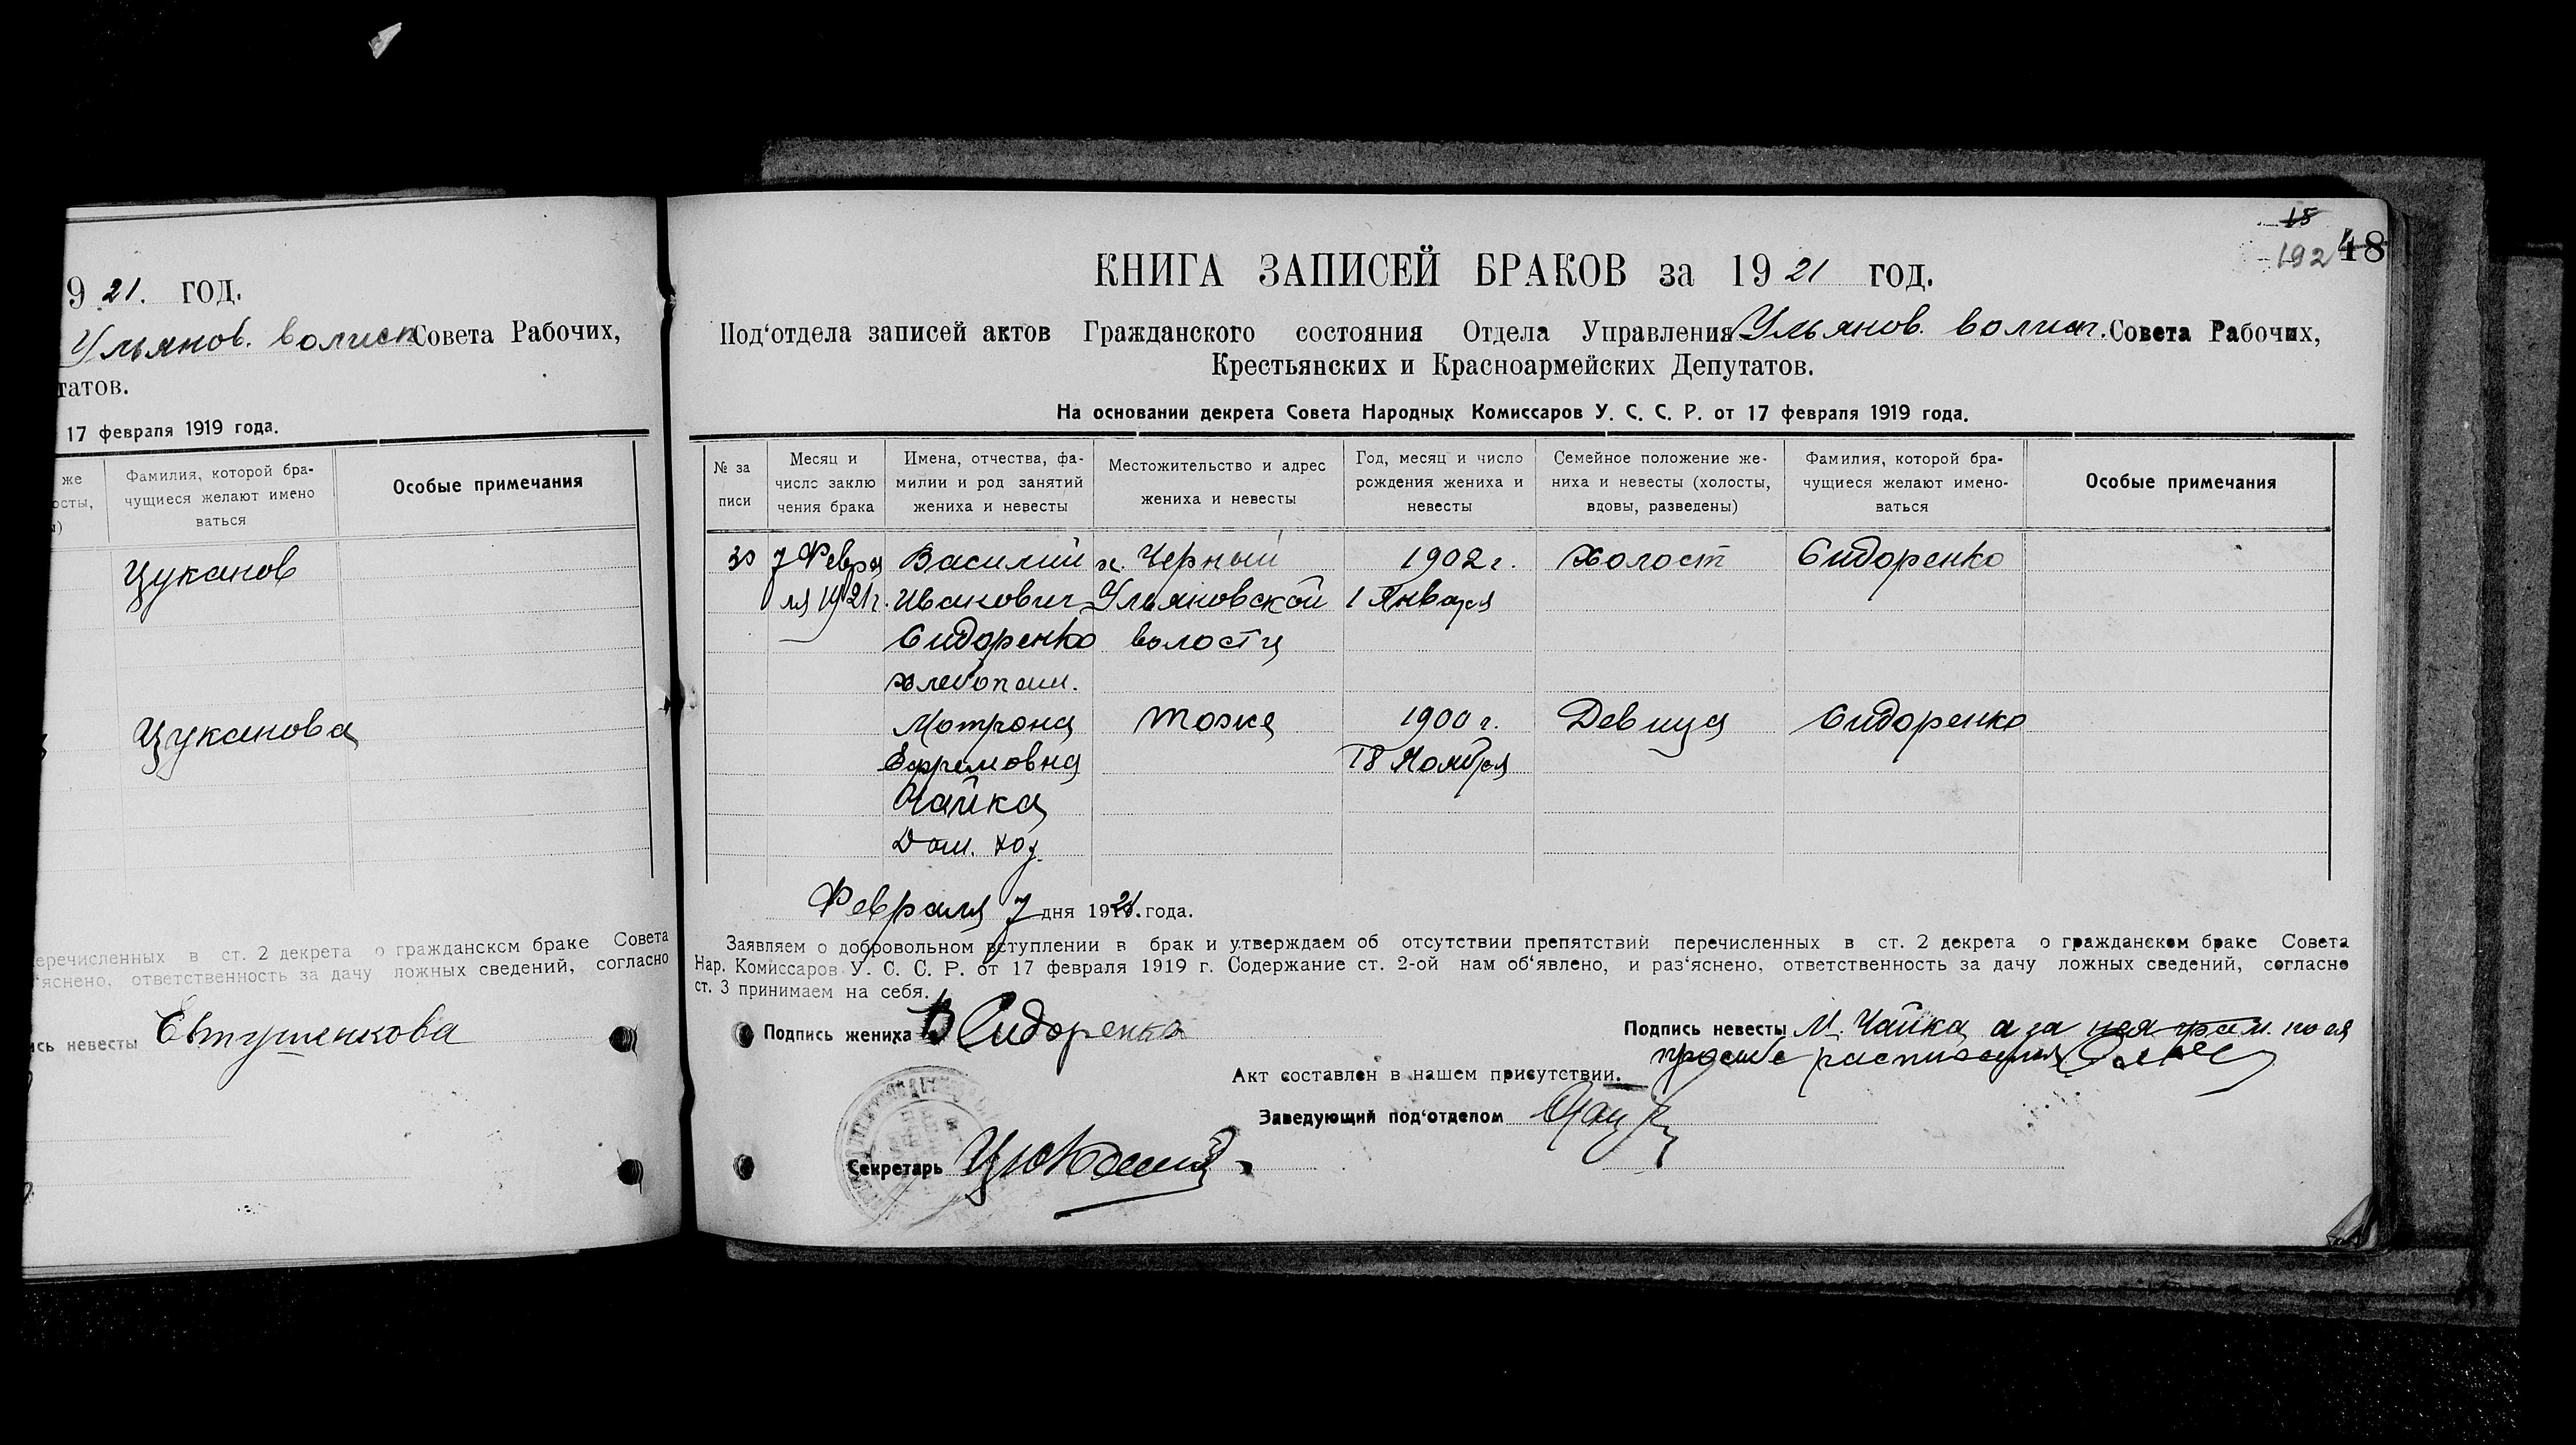 9 21. год.
Ульянов. волисп Совета Рабочих,
татов.
17 февраля 1919 года.
же
осты,
Фамилия, которой бра-
чущиеся желают имено
ваться
Особые примечания
Цуканов
Цуканова
еречисленных в ст. 2 декрета о гражданском браке Совета
'яснено, ответственность за дачу ложных сведений, согласно
сь невесты Евтушенкова
18
192 48
КНИГА ЗАПИСЕЙ БРАКОВ за 19 21 год.
Под'отдела записей актов Гражданского состояния Отдела Управления Ульянов. волисп. Совета Рабочих,
Крестьянских и Красноармейских Депутатов.
На основании декрета Совета Народных Комиссаров У. С. С. Р. от 17 февраля 1919 года.
№ за
писи
Месяц и
число заклю
чения брака
Имена, отчества, фа-
милии и род занятий
жениха и невесты
Местожительство и адрес
жениха и невесты
Год, месяц и число
рождения жениха и
невесты
Семейное положение же-
ниха и невесты (холосты,
вдовы, разведены)
Фамилия, которой бра-
чущиеся желают имено-
ваться
Особые примечания
30 7 Февра Василий х. Черный 1902 г. Холост Сидоренко
ля 1921 г. Иванович Ульяновской 1 Января
Сидоренко волости
хлебопаш.
Мотрона Тоже 1900 г. Девица Сидоренко
Ефремовна 18 Ноября
Чайка
Дом. хоз.
Февраля 7 дня 1921. года.
Заявляем о добровольном вступлении в брак и утверждаем об отсутствии препятствий перечисленных в ст. 2 декрета о гражданском браке Совета
Нар. Комиссаров У. С. С. Р. от 17 февраля 1919 г. Содержание ст. 2-ой нам об'явлено, и раз'яснено, ответственность за дачу ложных сведений, согласно
ст. 3 принимаем на себя.
Подпись жениха В Сидоренко
Подпись невесты М. Чайка а за нея грам. по ея
просьбе расписался
Акт составлен в нашем присутствии.
Заведующий под'отделом
Секретарь